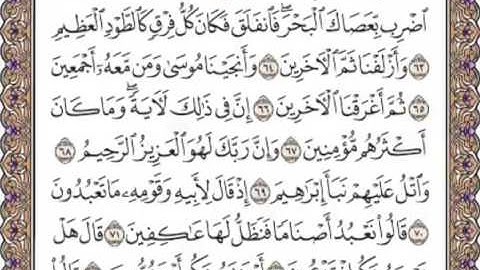 ٱضْرِب بِّعَصَاكَ ٱلْبَحْرَ ۖ فَٱنفَلَقَ فَكَانَ كُلُّ فِرْقٍ كَٱلطَّوْدِ ٱلْعَظِيمِ
﴿٦٣﴾ وَأَزْلَفْنَا ثَمَّ ٱلْءَاخَرِينَ ﴿٦٤﴾ وَأَنجَيْنَا مُوسَىٰ وَمَن مَّعَهُۥٓ أَجْمَعِينَ
﴿٦٥﴾ ثُمَّ أَغْرَقْنَا ٱلْءَاخَرِينَ ﴿٦٦﴾ إِنَّ فِى ذَٰلِكَ لَءَايَةً ۖ وَمَا كَانَ
أَكْثَرُهُم مُّؤْمِنِينَ ﴿٦٧﴾ وَإِنَّ رَبَّكَ لَهُوَ ٱلْعَزِيزُ ٱلرَّحِيمُ ﴿٦٨﴾
وَٱتْلُ عَلَيْهِمْ نَبَأَ إِبْرَٰهِيمَ ﴿٦٩﴾ إِذْ قَالَ لِأَبِيهِ وَقَوْمِهِۦ مَا تَعْبُدُونَ
﴿٧٠﴾ قَالُوا۟ نَعْبُدُ أَصْنَامًا فَنَظَلُّ لَهَا عَٰكِفِينَ ﴿٧١﴾ قَالَ هَلْ